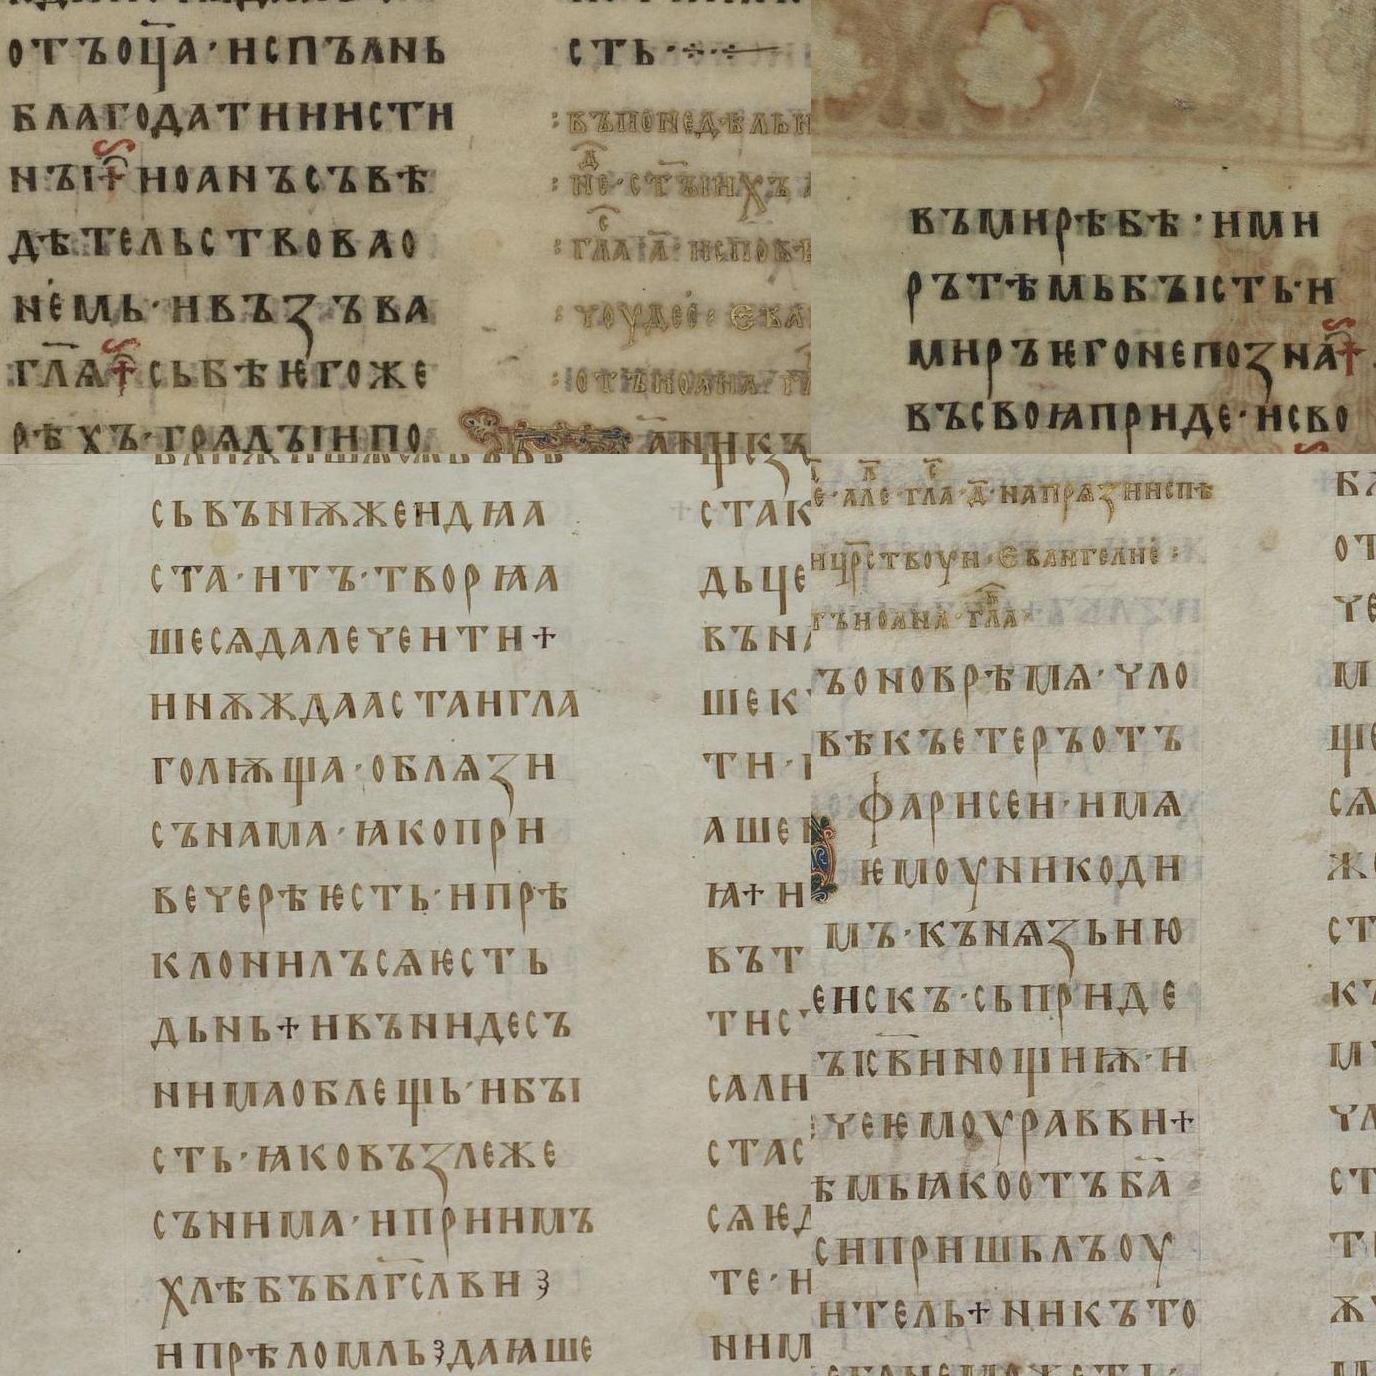 отъоц҃а·испълнь
благодатиинсти
нꙑ·ꙇ҅ноанъсъвѣ
дѣтельствовао
немь·ивъзъва
гл҃ѧ сьбѣѥгоже
рѣхъ·грѧдꙑипо
сть·
:въпонедѣльн
:не·ст҃ꙑихъ
:гл҃а·д҃·исповѣ
:чоудесе·Ева
:отъиоана·гл
аникъ
въмирѣбѣ·ими
рътѣмьбꙑсть·и
миръѥгонепозна
въсвоꙗприде·исво
сьвънѭжеидꙗа
ста·итъ·творꙗа
шесѧдалечеити+
инѫждаастаигла
голѭща·облѧзи
сънама·ꙗкопри
вечерѣѥсть·ипрѣ
клонилъсѧѥсть
дьнь+ивъниидесъ
нимаоблещь·ибꙑ
сть·ꙗковъзлеже
сънима·иприимъ
хлѣбъблг҃сви
ипрѣломль даꙗше
стак
дьце
въна
шек
ти·
аше
ꙗ+и
вът
тис
сали
стас
сѧѥд
те·и
ним
е·але·гла·д҃·напрѧзниспѣ
ицр҃ствоуи·Евангелие:
гъиоана·гла
ъоновремѧ·чло
вѣкъетеръотъ
фарисеи·имѧ
ѥмоуникоди
мъ·кънѧзьию
еискъ·сьприде
ъис҃виинощиѭ·и
чеѥмоуравви+
ѣмьꙗкоотъба҃
сипришьлъоу
итель+никъто
бл
от
че
м
ще
сѧ
же
ст
къ
мъ
чл
ст
т
ж